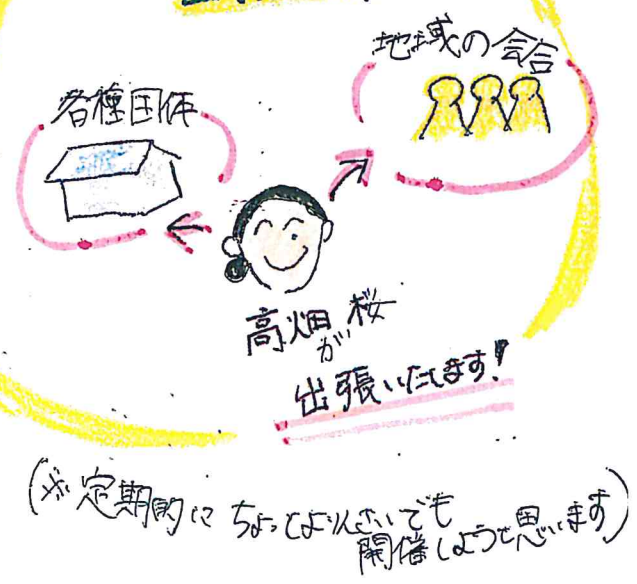 各種団体
地域の会合
高畑 桜
が
出張いたします!
(※定期的に ちょっとよりんさいでも
開催しようと思います)